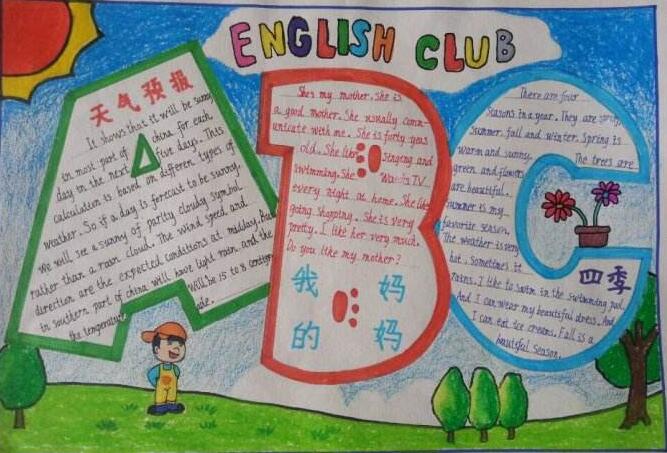 ENGLISH CLUB
天气预报
It shows that it will be sunny
in most part of china for each
day in the next five days. This
calculation is based on different types of
weather. So if a day is forecast to be sunny
we will see a sunny of partly cloudy symbol
rather than a rain cloud. The wind speed and
direction are the expected conditions at midday.
in southern part of china will have light rain and the
the temperature will be 15 to 8 centigra
de.
She's my mother. She is
a good mother. She usually comm-
unicate with me. She is forty yeas
old. She likes singing and
swimming. She Watch TV
every night at home. She likes
going shopping. She is very
pretty. I like her very much.
Do you like my mother?
我 妈
的 妈
There are four
seasons in a year. They are spring,
summer, fall and winter. Spring is
warm and sunny. The trees are
green and flowers
are beautiful.
summer is my
favorite season.
The weather is very
hot. Sometimes it
rains. I like to swim in the swimming pool.
And I can wear my beautiful dress. And
I can eat ice creams. Fall is a
beautiful season.
四季